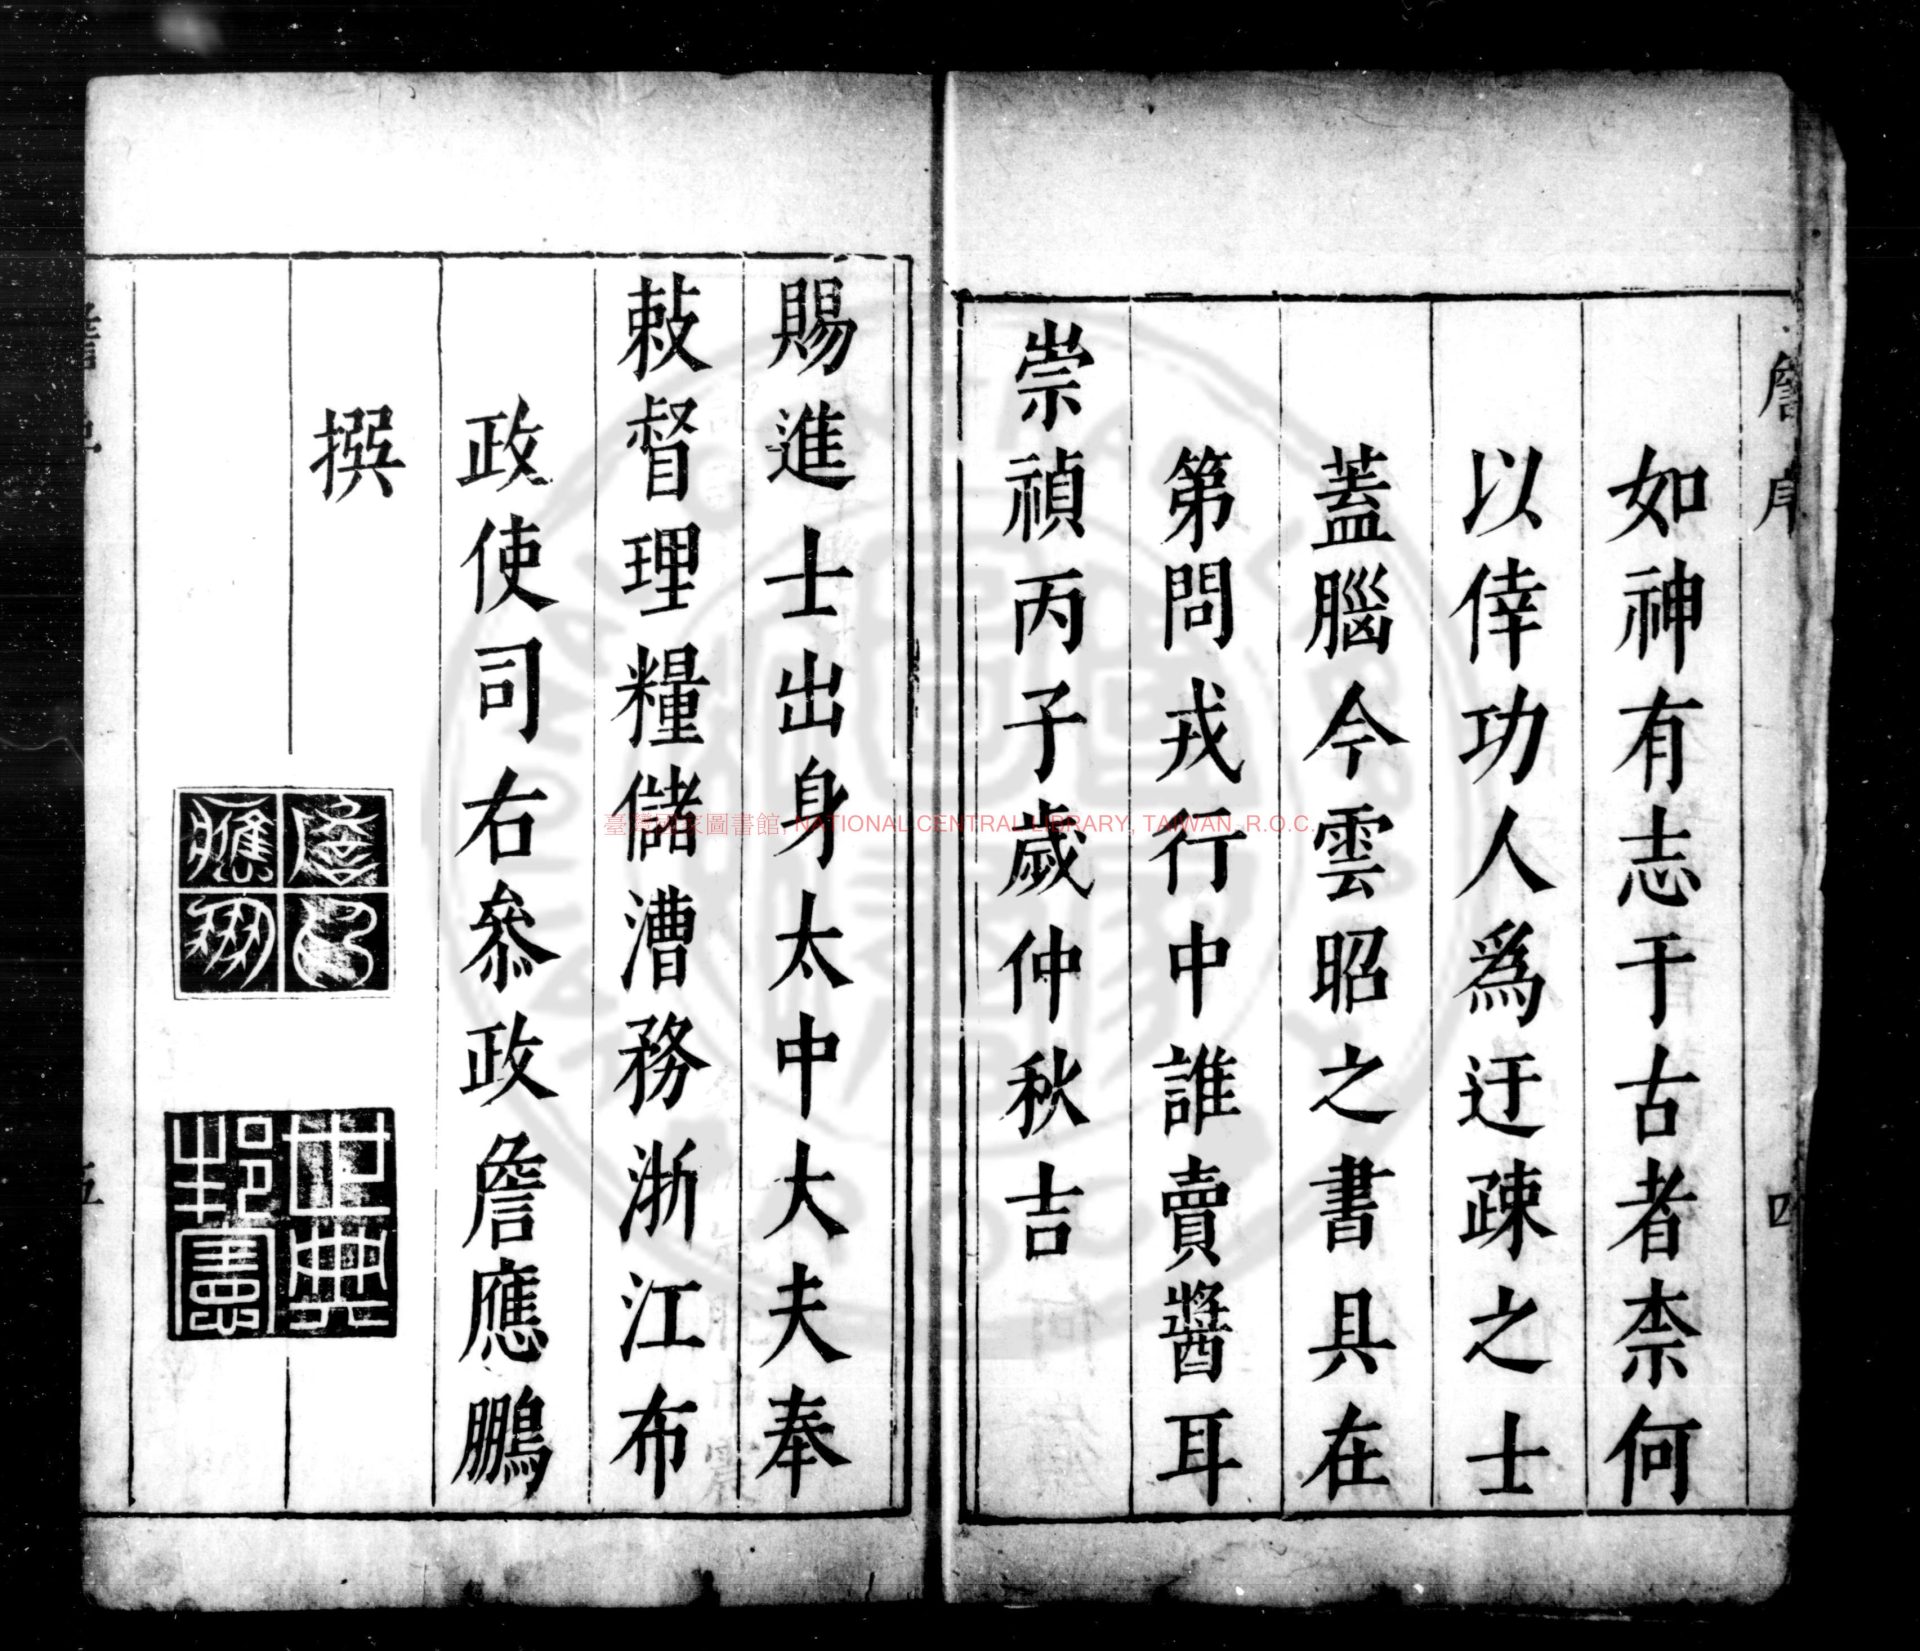 詹序
四
如神有志于古者柰何
以倖功人為迂疎之士
蓋腦今雲昭之書具在
第問戎行中誰賣醬耳
崇禎丙子歲仲秋吉
賜進士出身太中大夫奉
敕督理糧儲漕務浙江布
政使司右叅政詹應鵬
撰
詹印應鵬
世典邦憲
五
臺灣國家圖書館, NATIONAL CENTRAL LIBRARY, TAIWAN, R.O.C.